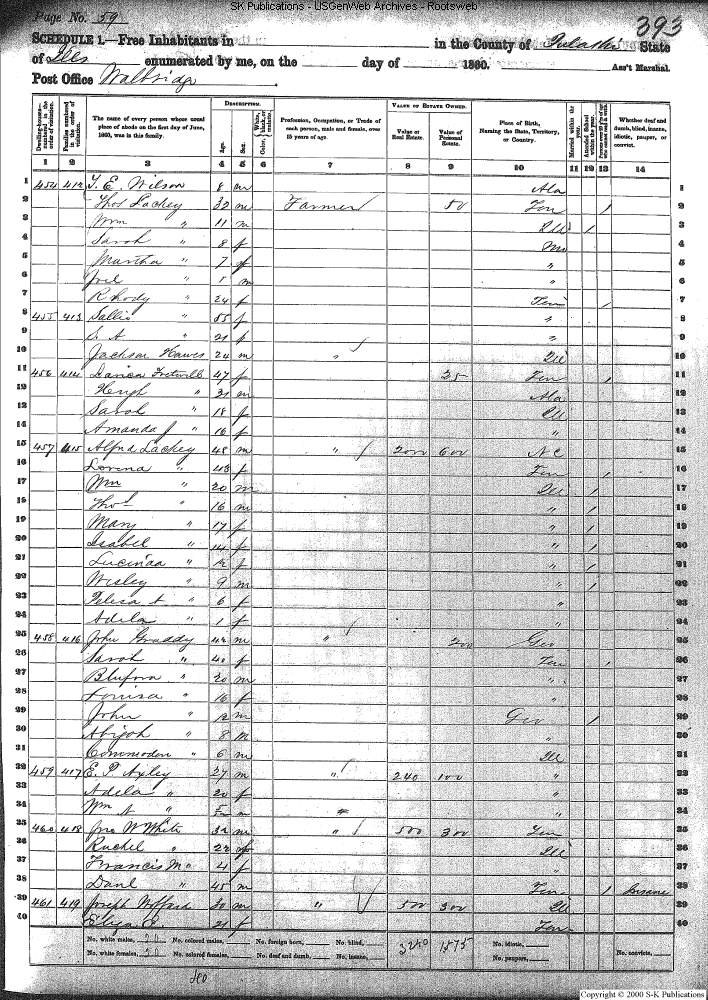 SK Publications - USGenWeb Archives - Rootsweb
Page No. 59
393
SCHEDULE 1.—Free Inhabitants in in the County of Pulaski State
of Ills enumerated by me, on the day of 1860. Ass't Marshal.
Post Office Walbridge
Dwelling-houses—numbered in the order of visitation.
Families numbered in the order of visitation.
The name of every person whose usual place of abode on the first day of June, 1860, was in this family.
DESCRIPTION.
Age.
Sex.
Color,
Profession, Occupation, or Trade of each person, male and female, over 15 years of age.
VALUE OF ESTATE OWNED.
Value of Real Estate.
Value of Personal Estate.
Place of Birth, Naming the State, Territory, or Country.
Married within the year.
Attended School within the year.
Whether deaf and dumb, blind, insane, idiotic, pauper, or convict.
1 2 3 4 5 6 7 8 9 10 11 12 13 14
1 454 412 T. E. Wilson 8 m Ala 1
2 Thos Lackey 32 m Farmer 50 Ten / 2
3 Wm " 11 m Ill / 3
4 Sarah " 8 f Mo 4
5 Martha " 7 f " 5
6 Joel " m " 6
7 Rhody " 24 f Ten / 7
8 455 413 Sallie " 55 f " 8
9 S. A " 21 f " 9
10 Jackson Hawes 24 m " Ill 10
11 456 414 47 f 25 Ten / 11
12 " m Ala 12
13 Sarah " 18 f Ill 13
14 Amanda J " 16 f " 14
15 457 415 Alfred Lackey 48 m " / 2000 600 N C 15
16 Lorena " 43 f Ten / 16
17 Wm " 20 m Ill / 17
18 Thos " 16 m " / 18
19 Mary " 17 f " / 19
20 Isabel " 14 f " / 20
21 Lucinda " 12 f " / 21
22 Wesley " 9 m " / 22
23 A " 6 f " 23
24 Adela " 1 f " 24
25 458 416 John Graddy 42 m " / 200 Geo 25
26 Sarah " 40 f Ten / 26
27 Bluford " 20 m " 27
28 Louisa " 16 f " 28
29 John " 12 m Geo / 29
30 Abijah " 8 m " 30
31 Commodore " 6 m Ill 31
32 459 417 E. P. Axley 27 m " / 240 100 " 32
33 Adela " 20 f " 33
34 Wm A " m " 34
35 460 418 Jno W White 32 m " / 500 300 Ten 35
36 Rachel " 22 f Ill 36
37 Francis M " 4 f " 37
38 Danl " 45 m Ten / Insane 38
39 461 419 Joseph 30 m " / 500 300 Ill 39
40 Eliza E. 21 f Ten 40
No. white males, 20 No. colored males, No. foreign born, No. blind, 3240 1575 No. idiotic,
No. white females, 20 No. colored females, No. deaf and dumb, No. insane, No. paupers, No. convicts,
Copyright © 2000 S-K Publications